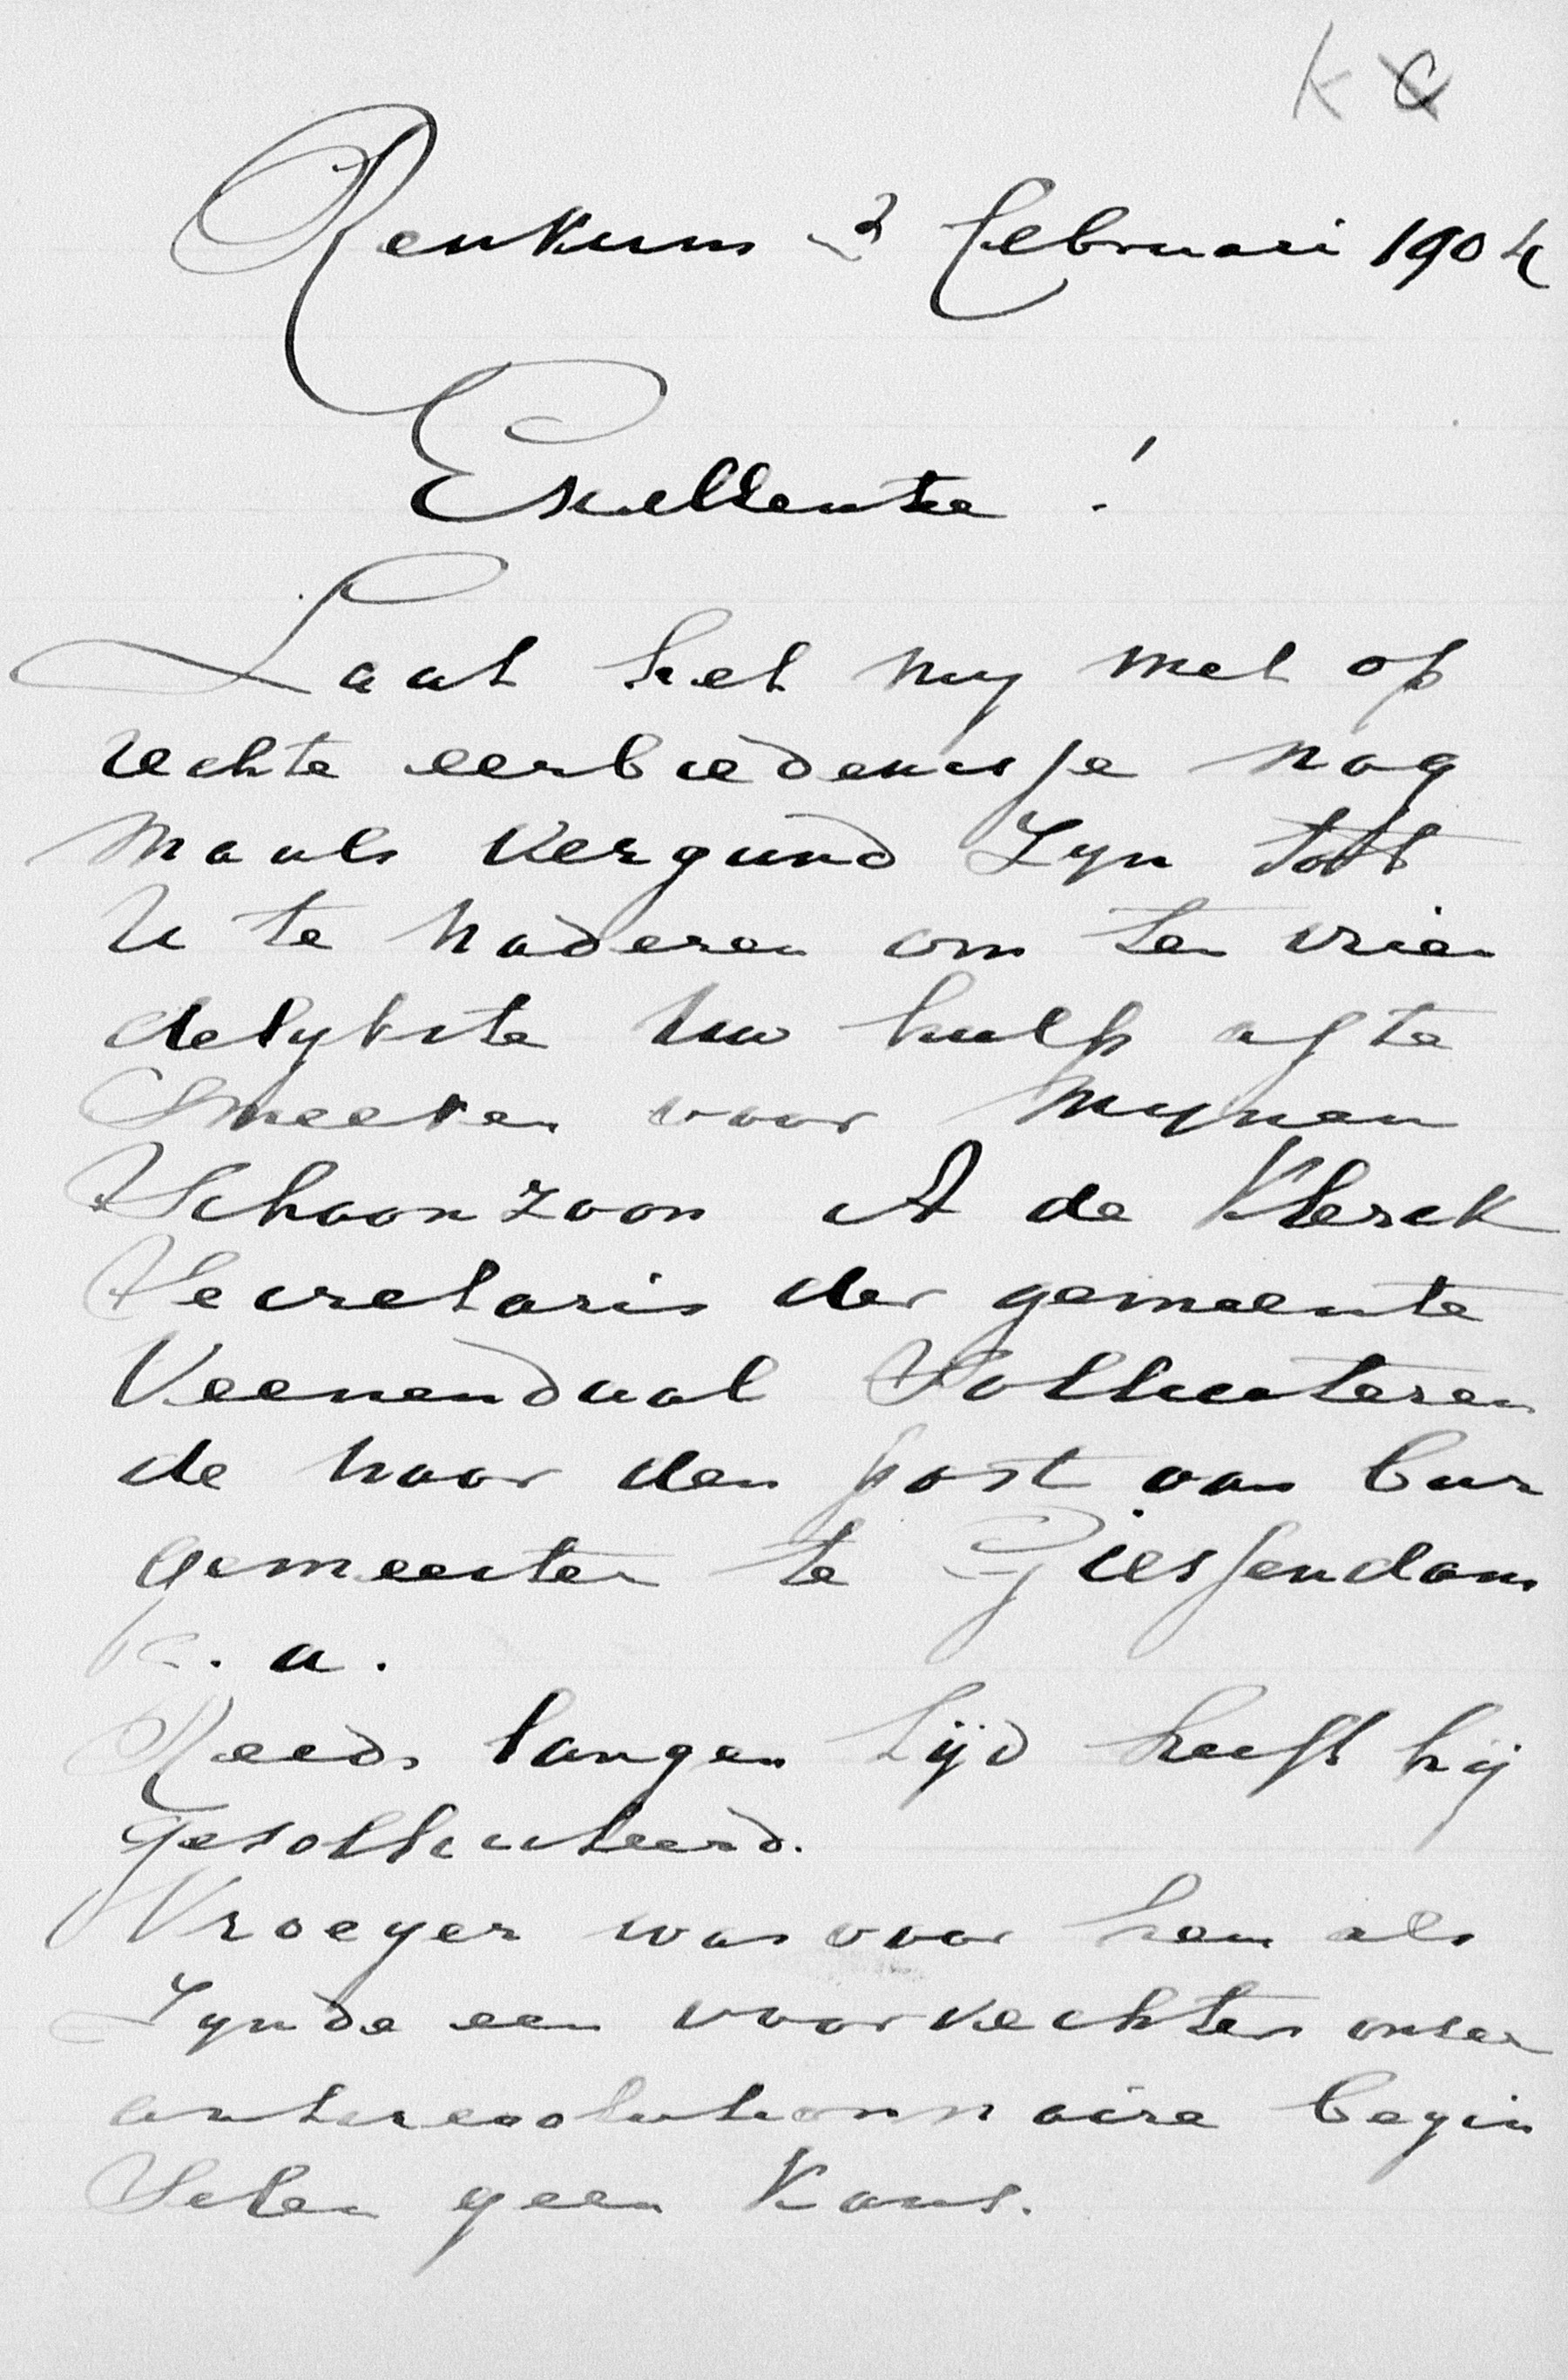 K
Renkum 3 februari 1904
Excellentie!
Laat het my met op
rechte eerbiedenisse nog
maals vergund Zyn tot
U te naderen om ten vrien
delykste Uw hulp af te
Smeeken voor mynen
Schoonzoon A de Klerck
Secretaris der gemeente
Veenendaal Solliciteren
de naar den post van bur
gemeester te Giessendam
c. a.
Reeds langen tijd heeft hij
gesolliciteerd.
Vroeger was voor hem als
Zynde een voorvechter onzer
antirevolutionnaire begin
Selen geen Kans.